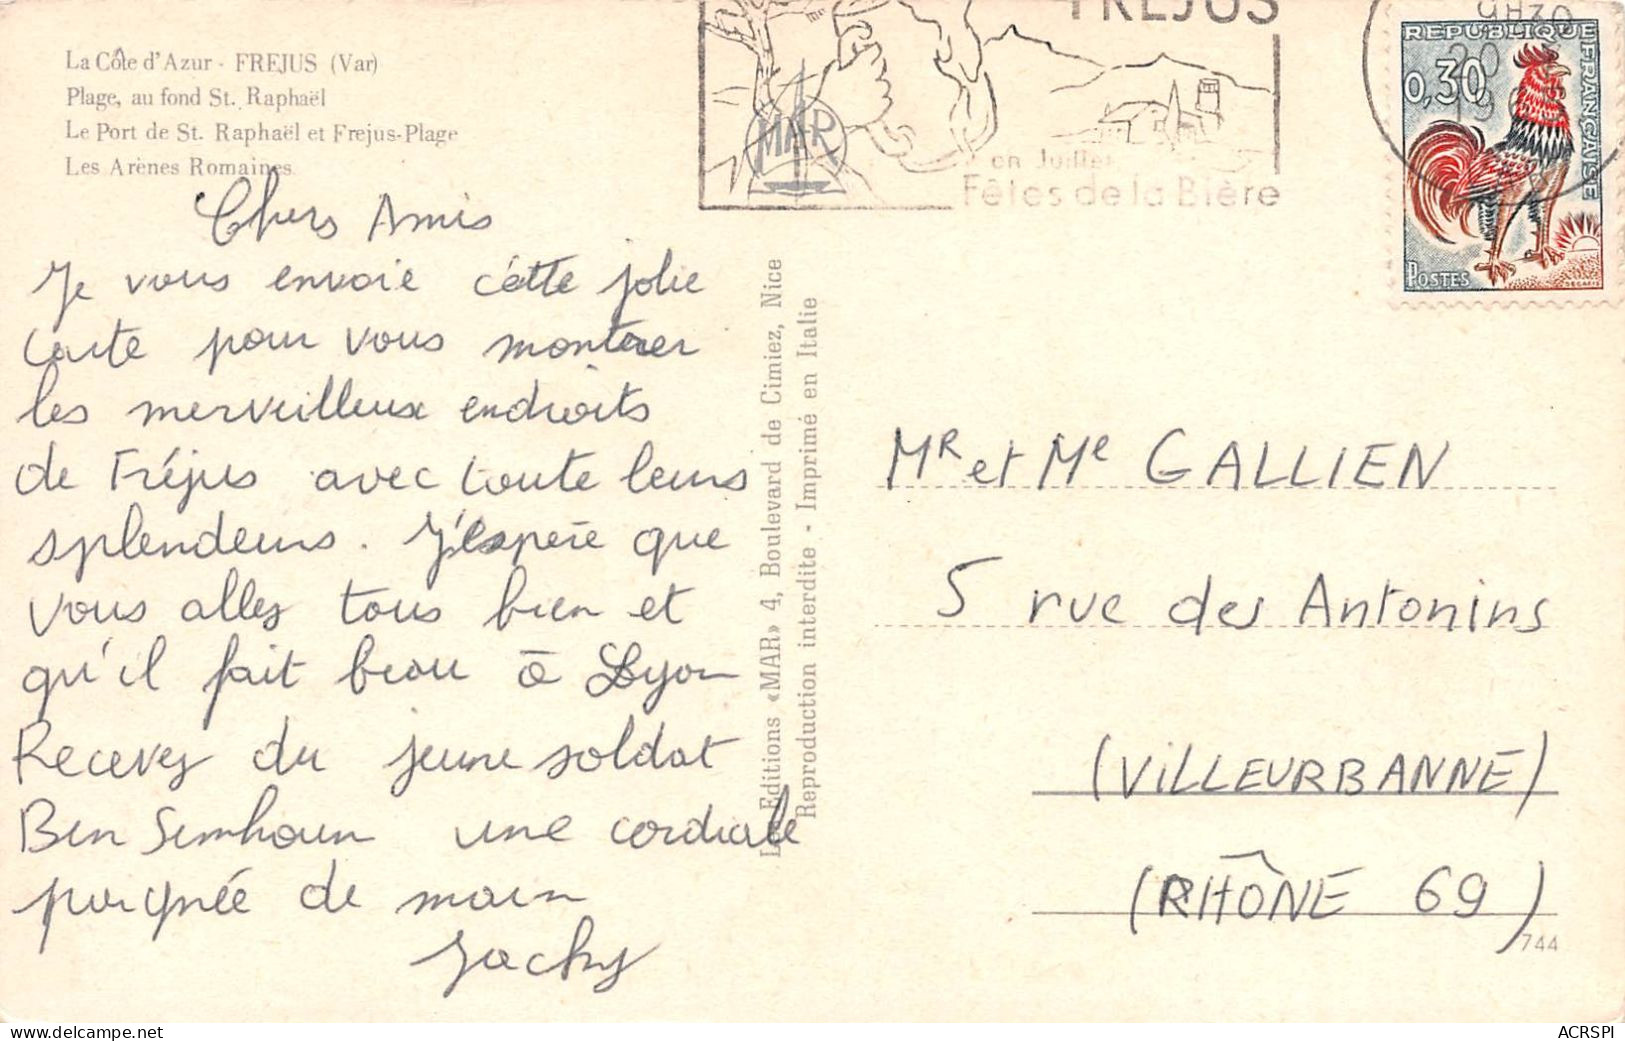 La Côte d'Azur - FREJUS (Var)
Plage, au fond St. Raphaël
Le Port de St. Raphaël et Frejus-Plage
Les Arènes Romaines
Chers Amis
Je vous envoie cette jolie
carte pour vous montrer
les merveilleux endroits
de Fréjus avec toute leurs
splendeurs. J'éspère que
vous allez tous bien et
qu'il fait beau à Lyon
Recevez du jeune soldat
Ben Simhoun une cordiale
poignée de main
Jacky
Les Editions «MAR» 4, Boulevard de Cimiez, Nice
Reproduction interdite - Imprimé en Italie
MAR
FREJUS
en Juillet
Fêtes de la Bière
9H30
20
19
REPUBLIQUE FRANÇAISE
0,30
POSTES
DECARIS
Mr et Me GALLIEN
5 rue des Antonins
(VILLEURBANNE)
(RHÔNE 69)
744
ACRSPI